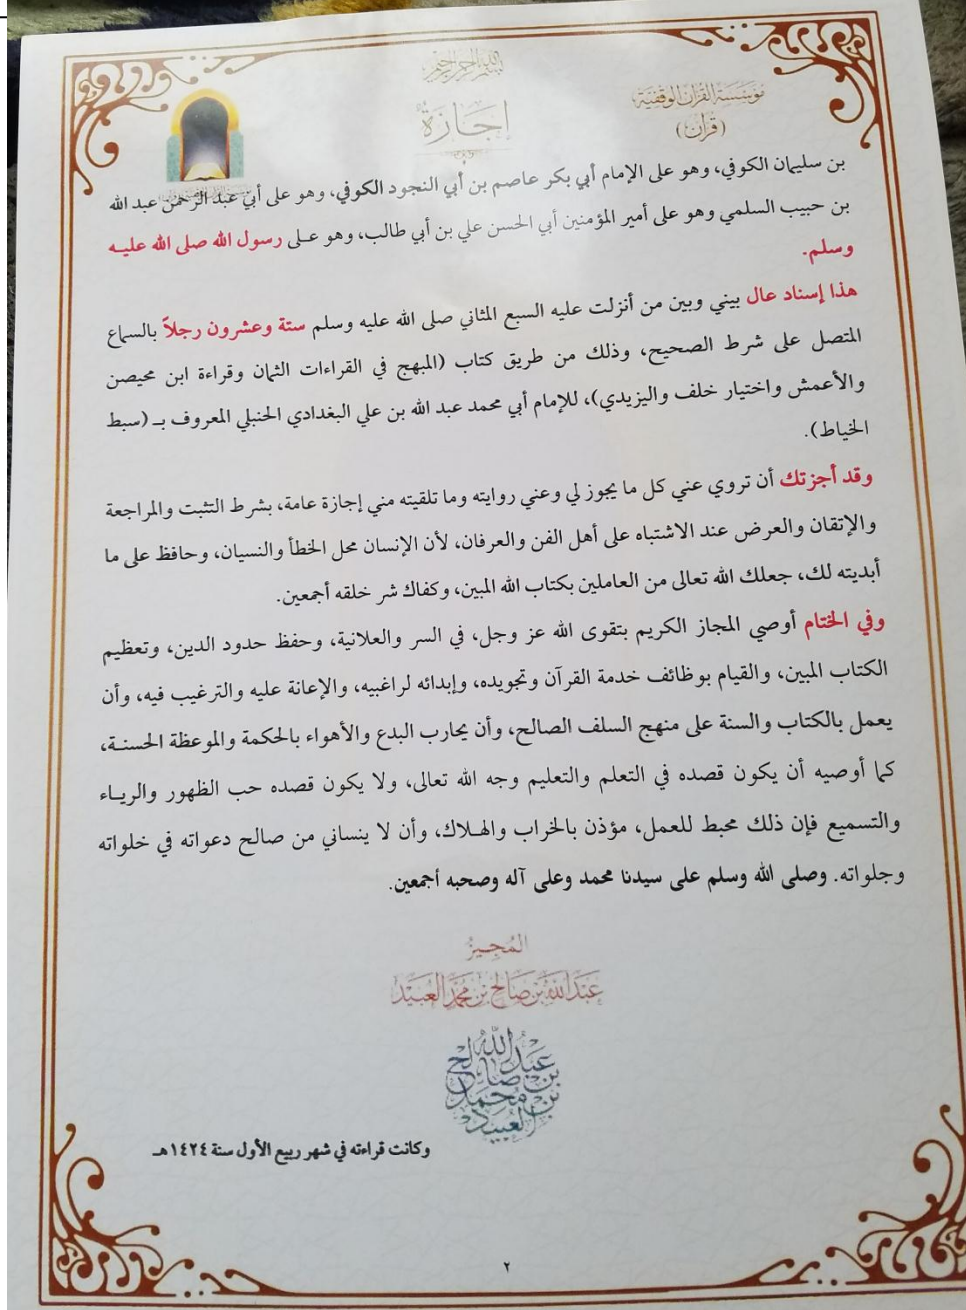 بسم الله الرحمن الرحيم
مؤسسة القرآن الوقفية
(قرآن)
إجازة
بن سليمان الكوفي، وهو على الإمام أبي بكر عاصم بن أبي النجود الكوفي، وهو على أبي عبد الرحمن عبد الله
بن حبيب السلمي وهو على أمير المؤمنين أبي الحسن علي بن أبي طالب، وهو على رسول الله صلى الله عليه
وسلم.
هذا إسناد عال بيني وبين من أنزلت عليه السبع المثاني صلى الله عليه وسلم ستة وعشرون رجلاً بالسماع
المتصل على شرط الصحيح، وذلك من طريق كتاب (المبهج في القراءات الثمان وقراءة ابن محيصن
والأعمش واختيار خلف واليزيدي)، للإمام أبي محمد عبد الله بن علي البغدادي الحنبلي المعروف بـ (سبط
الخياط).
وقد أجزتك أن تروي عني كل ما يجوز لي وعني روايته وما تلقيته مني إجازة عامة، بشرط التثبت والمراجعة
والإتقان والعرض عند الاشتباه على أهل الفن والعرفان، لأن الإنسان محل الخطأ والنسيان، وحافظ على ما
أبديته لك، جعلك الله تعالى من العاملين بكتاب الله المبين، وكفاك شر خلقه أجمعين.
وفي الختام أوصي المجاز الكريم بتقوى الله عز وجل، في السر والعلانية، وحفظ حدود الدين، وتعظيم
الكتاب المبين، والقيام بوظائف خدمة القرآن وتجويده، وإبدائه لراغبيه، والإعانة عليه والترغيب فيه، وأن
يعمل بالكتاب والسنة على منهج السلف الصالح، وأن يحارب البدع والأهواء بالحكمة والموعظة الحسنة،
كما أوصيه أن يكون قصده في التعلم والتعليم وجه الله تعالى، ولا يكون قصده حب الظهور والرياء
والتسميع فإن ذلك محبط للعمل، مؤذن بالخراب والهلاك، وأن لا ينساني من صالح دعواته في خلواته
وجلواته. وصلى الله وسلم على سيدنا محمد وعلى آله وصحبه أجمعين.
المُجيزُ
عبد الله بن صالح بن محمد العبيد
عبد الله
بن صالح
بن محمد
العبيد
وكانت قراءته في شهر ربيع الأول سنة ١٤٢٤هـ
٢